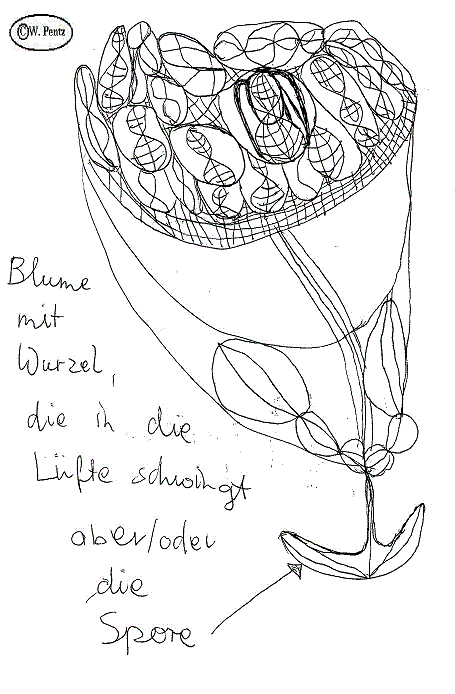 ©W. Pentz
Blume
mit
Wurzel,
die in die
Lüfte schwingt
aber/oder
die
Spore